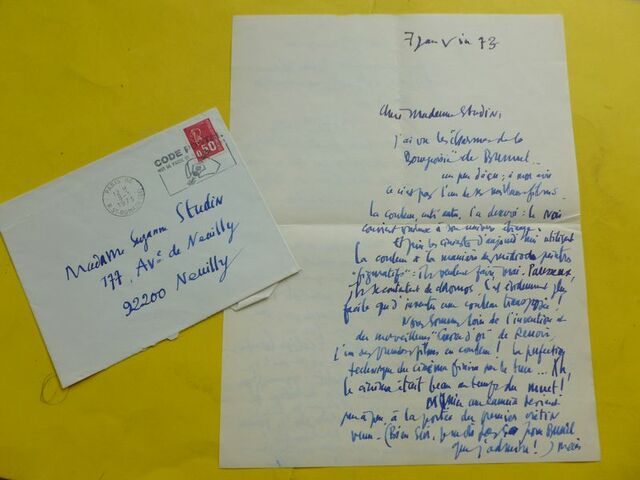 7 Janvier 73
Chère Madame Studin,
J'ai vu les "charmes de la
Bourgeoisie" de Bunuel...
un peu déçu ; à mon avis
ce n'est pas l'un de ses meilleurs films.
La couleur, entre autres, l'a desservi : le noir
convient mieux à son univers étrange.
Et puis les cinéastes d'aujourd'hui utilisent
la couleur à la manière des peintres
"figuratifs" : ils veulent faire vrai. Paresseux,
ils se contentent de chromos. C'est évidemment plus
facile que d'inventer une couleur transposée !
Nous sommes loin de l'invention et
du merveilleux "Carrosse d'or" de Renoir,
l'un des premiers films en couleur ! La perfection
technique du cinéma finira par le tuer... Ah,
le cinéma était beau au temps du muet !
une caméra devient
peu à peu à la portée du premier crétin
venu. (Bien sûr, je ne dis pas ça pour Bunuel
que j'admire !) mais
CODE P
0,50
PARIS
1973
Madame Suzanne Studin
177, Ave de Neuilly
92200 Neuilly